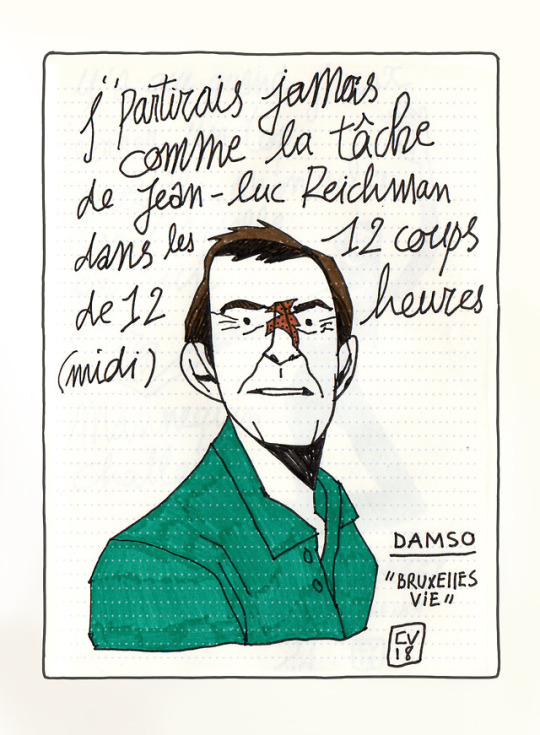 J'partirais jamais
comme la tâche
de Jean-luc Reichman
dans les 12 coups
de 12 heures
(midi)
DAMSO
"BRUXELLES
VIE"
CV
18